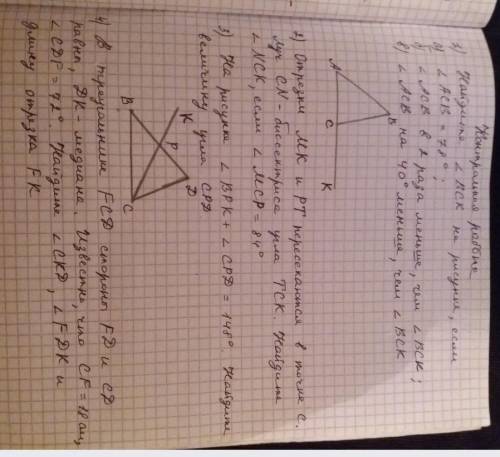 Контрольная работа
1) Найдите ∠ BCK на рисунке, если
а) ∠ ACB = 78°,
б) ∠ ACB в 2 раза меньше, чем ∠ BCK;
в) ∠ ACB на 40° меньше, чем ∠ BCK
A
B
C
K
2) Отрезки MK и PT пересекаются в точке C.
Луч CN - биссектриса угла TCK. Найдите
∠ NCK, если ∠ MCP = 84°
3) На рисунке ∠ BPK + ∠ CPD = 148°. Найдите
величину угла CPD
K
B
P
C
D
4) В треугольнике FCD стороны FD и CD
равны, DK - медиана. Известно, что CF = 18 см,
∠ CDF = 72°. Найдите ∠ CKD, ∠ FDK и
длину отрезка FK